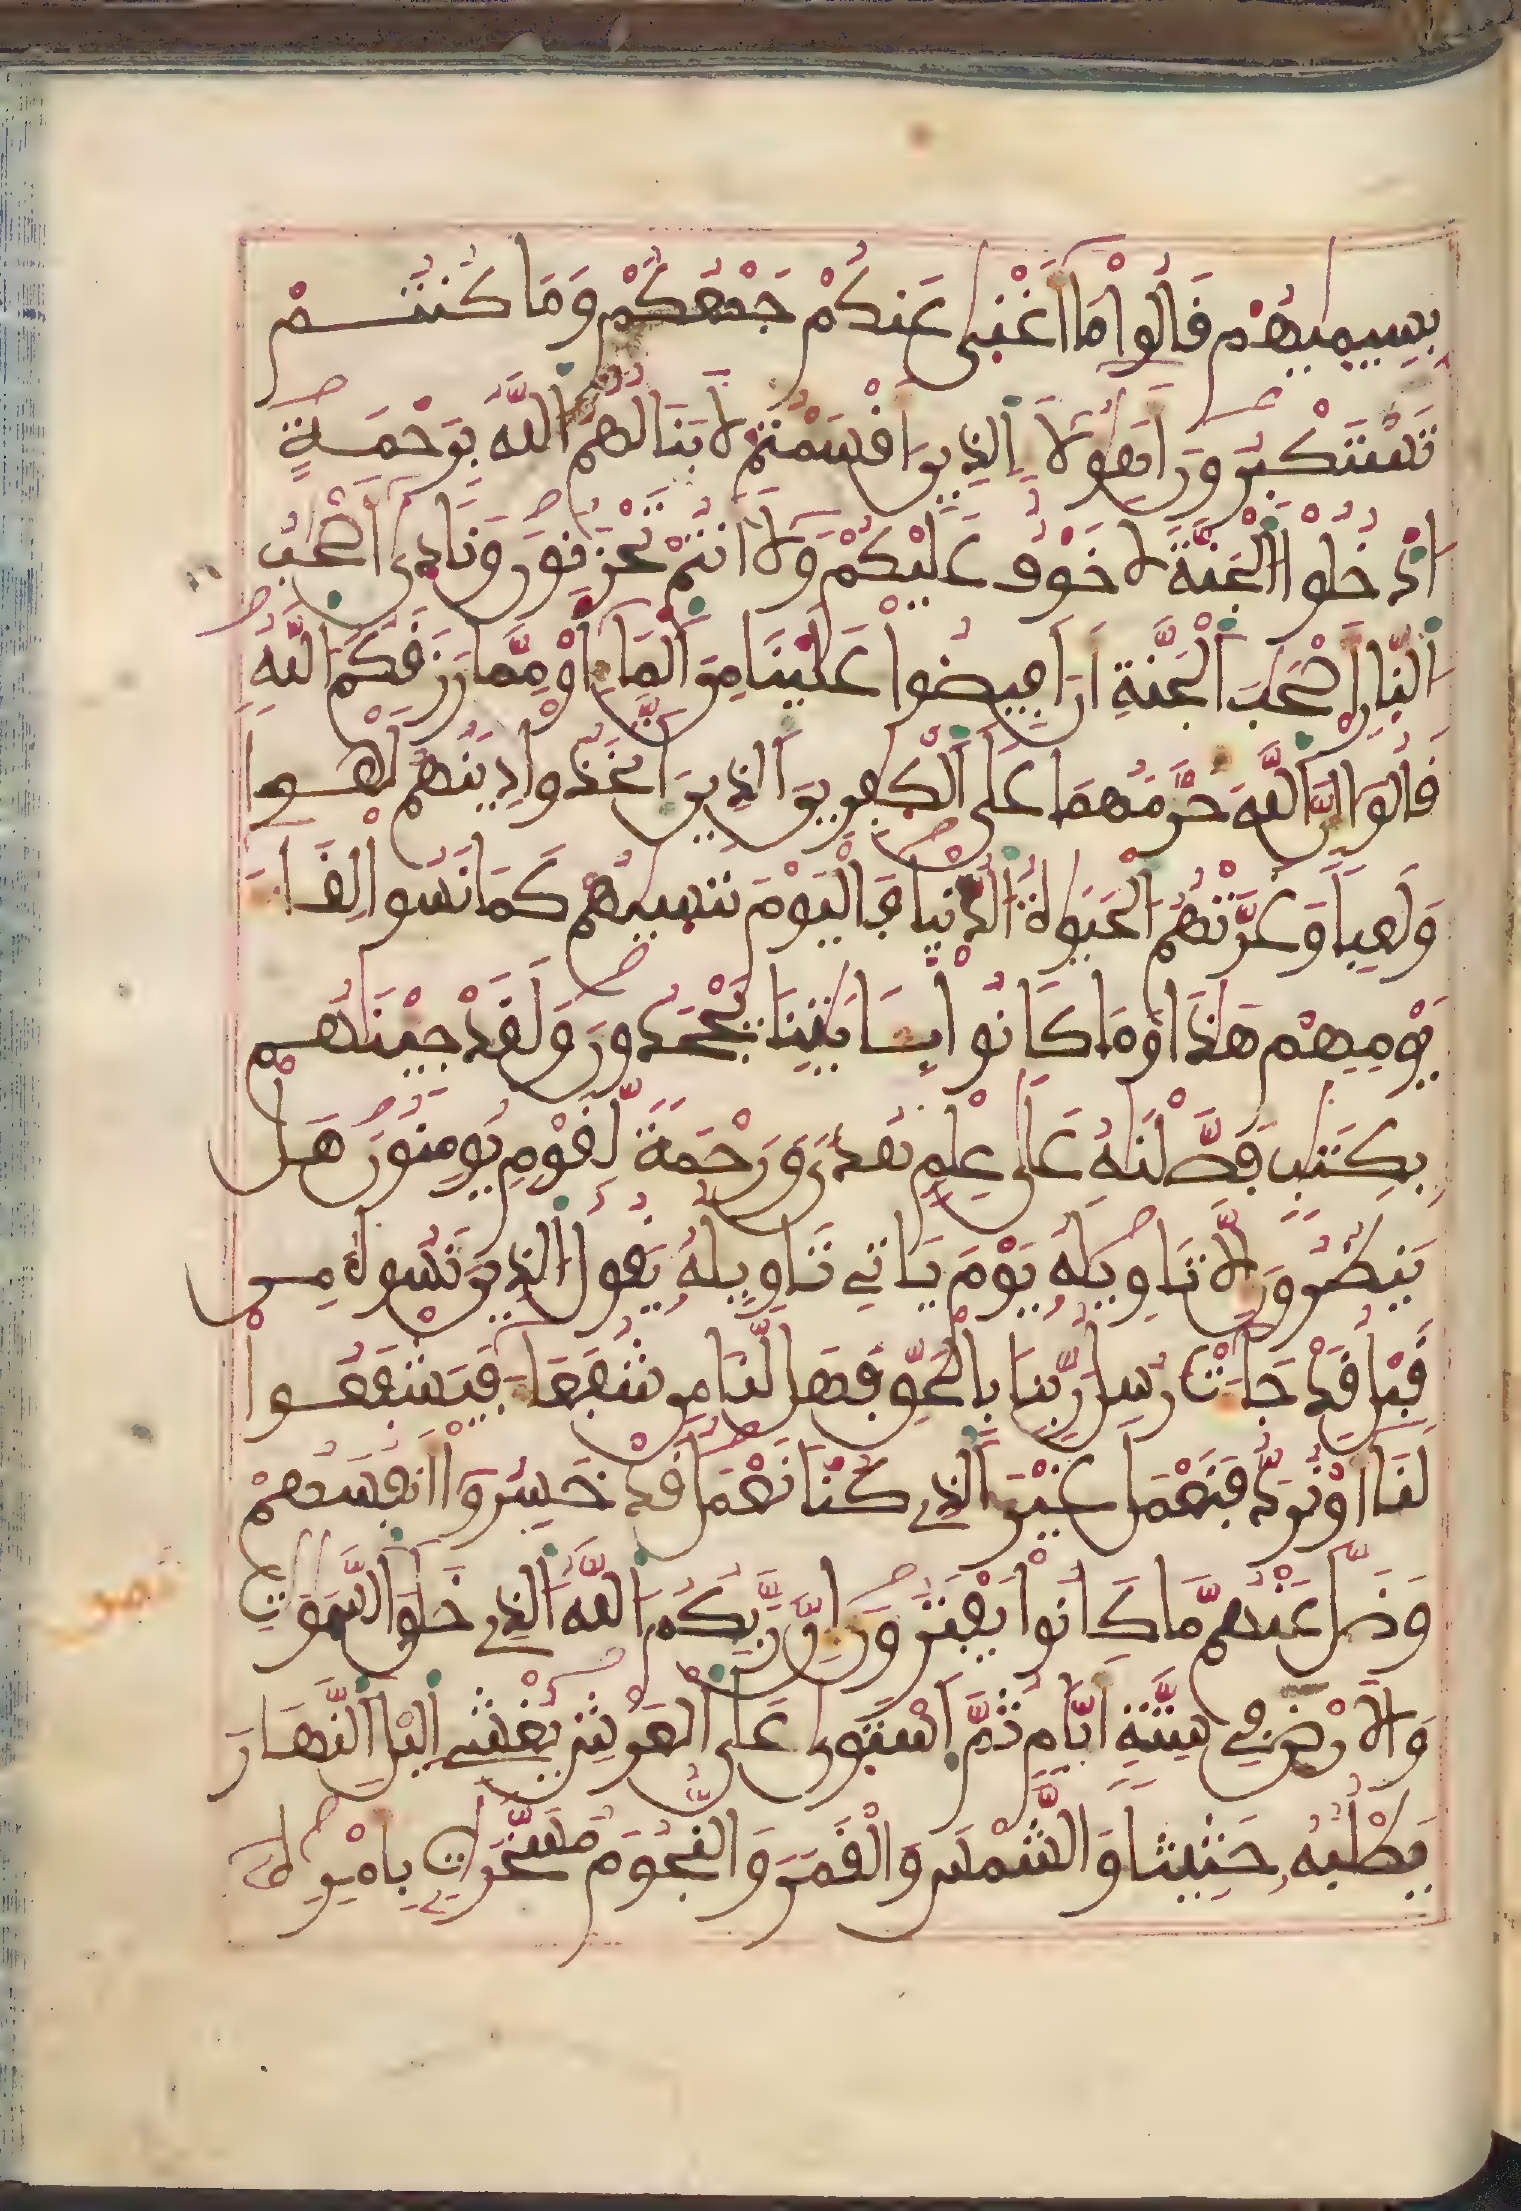 بِسِيمِيٰهُمْ قَالُواْ مَا أَغْنِىٰ عَنكُمْ جَمْعُكُمْ وَمَا كُنتُمْ
تَسْتَكْبِرُونَ أَهَٰؤُلَاءِ الذِينَ أَقْسَمْتُمْ لَا يَنَالُهُمُ اللَّهُ بِرَحْمَةٍ
ادْخُلُواْ الْجَنَّةَ لَا خَوْفٌ عَلَيْكُمْ وَلَا أَنتُمْ تَحْزَنُونَ وَنَادِىٰ أَصْحَٰبُ
النَّارِ أَصْحَٰبَ الْجَنَّةِ أَنْ أَفِيضُواْ عَلَيْنَا مِنَ الْمَاءِ اوْ مِمَّا رَزَقَكُمُ اللَّهُ
قَالُواْ إِنَّ اللَّهَ حَرَّمَهُمَا عَلَى الْكٰفِرِينَ الذِينَ اتَّخَذُواْ دِينَهُمْ لَهْوا
وَلَعِبا وَغَرَّتْهُمُ الْحَيَوٰةُ الدُّنْيَا فَالْيَوْمَ نَنسِيٰهُمْ كَمَا نَسُواْ لِقَاءَ
يَوْمِهِمْ هَٰذَا وَمَا كَانُواْ بِـَٔايَٰتِنَا يَجْحَدُونَ وَلَقَدْ جِيْنَٰهُم
بِكِتَٰبٍ فَصَّلْنَٰهُ عَلَىٰ عِلْمٍ هُدىً وَرَحْمَةً لِّقَوْمٍ يُومِنُونَ هَلْ
يَنظُرُونَ إِلَّا تَاوِيلَهُ يَوْمَ يَاتِي تَاوِيلُهُ يَقُولُ الذِينَ نَسُوهُ مِن
قَبْلُ قَدْ جَاءَتْ رُسُلُ رَبِّنَا بِالْحَقِّ فَهَل لَّنَا مِن شُفَعَاءَ فَيَشْفَعُواْ
لَنَا أَوْ نُرَدُّ فَنَعْمَلَ غَيْرَ الذِي كُنَّا نَعْمَلُ قَدْ خَسِرُواْ أَنفُسَهُمْ
وَضَلَّ عَنْهُم مَّا كَانُواْ يَفْتَرُونَ إِنَّ رَبَّكُمُ اللَّهُ الذِي خَلَقَ السَّمَٰوَٰتِ
وَالْأَرْضَ فِي سِتَّةِ أَيَّامٍ ثُمَّ اسْتَوِىٰ عَلَى الْعَرْشِ يُغْشِي الَيْلَ النَّهَارَ
يَطْلُبُهُ حَثِيثا وَالشَّمْسَ وَالْقَمَرَ وَالنُّجُومَ مُسَخَّرَٰتٍ بِأَمْرِهِ